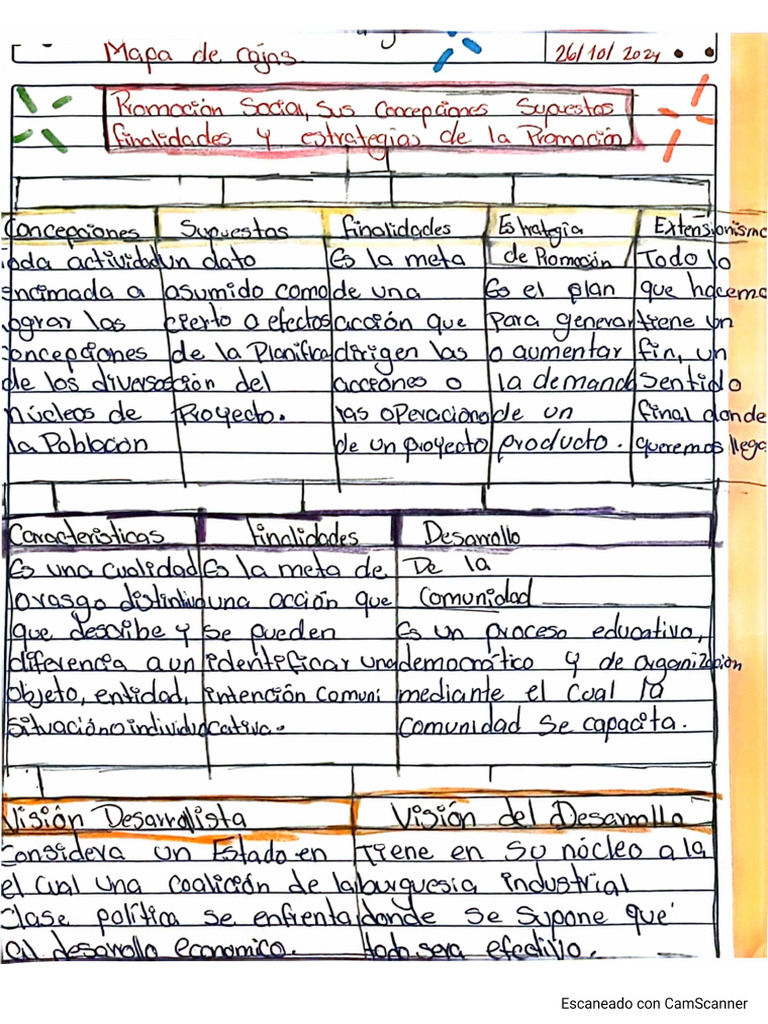 Mapa de cajas.
26/10/2024
Promoción Social, Sus Concepciones Supuestos
finalidades y estrategias de la Promoción
Concepciones
Toda actividad
encimada a
lograr las
concepciones
de los diversos
núcleos de
la Población
Supuestos
un dato
asumido como
cierto o efectos
de la Planifica
ción del
Proyecto.
finalidades
Es la meta
de una
acción que
dirigen las
acciones o
las operaciono
de un proyecto
Estrategia
de Promoción
Es el plan
para generar
o aumentar
la demanda
de un
producto.
Extensionismo
Todo lo
que hacemo
tiene un
fin, un
sentido
final donde
queremos llega
Características
Es una cualidad
o rasgo distintivo
que describe y
diferencia a un
objeto, entidad,
situación o individuo
finalidades
Es la meta de
una acción que
se pueden
identificar una
intención comuni
cativa.
Desarrollo
De la
Comunidad
Es un proceso educativo,
democrático y de organización
mediante el cual la
comunidad se capacita.
Visión Desarrolista
Considera un Estado en
el cual una coalición de la
clase política se enfrenta
al desarrollo economico.
Visión del Desarrollo
Tiene en su núcleo a la
burguesia industrial
donde se supone que
todo sera efectivo.
Escaneado con CamScanner